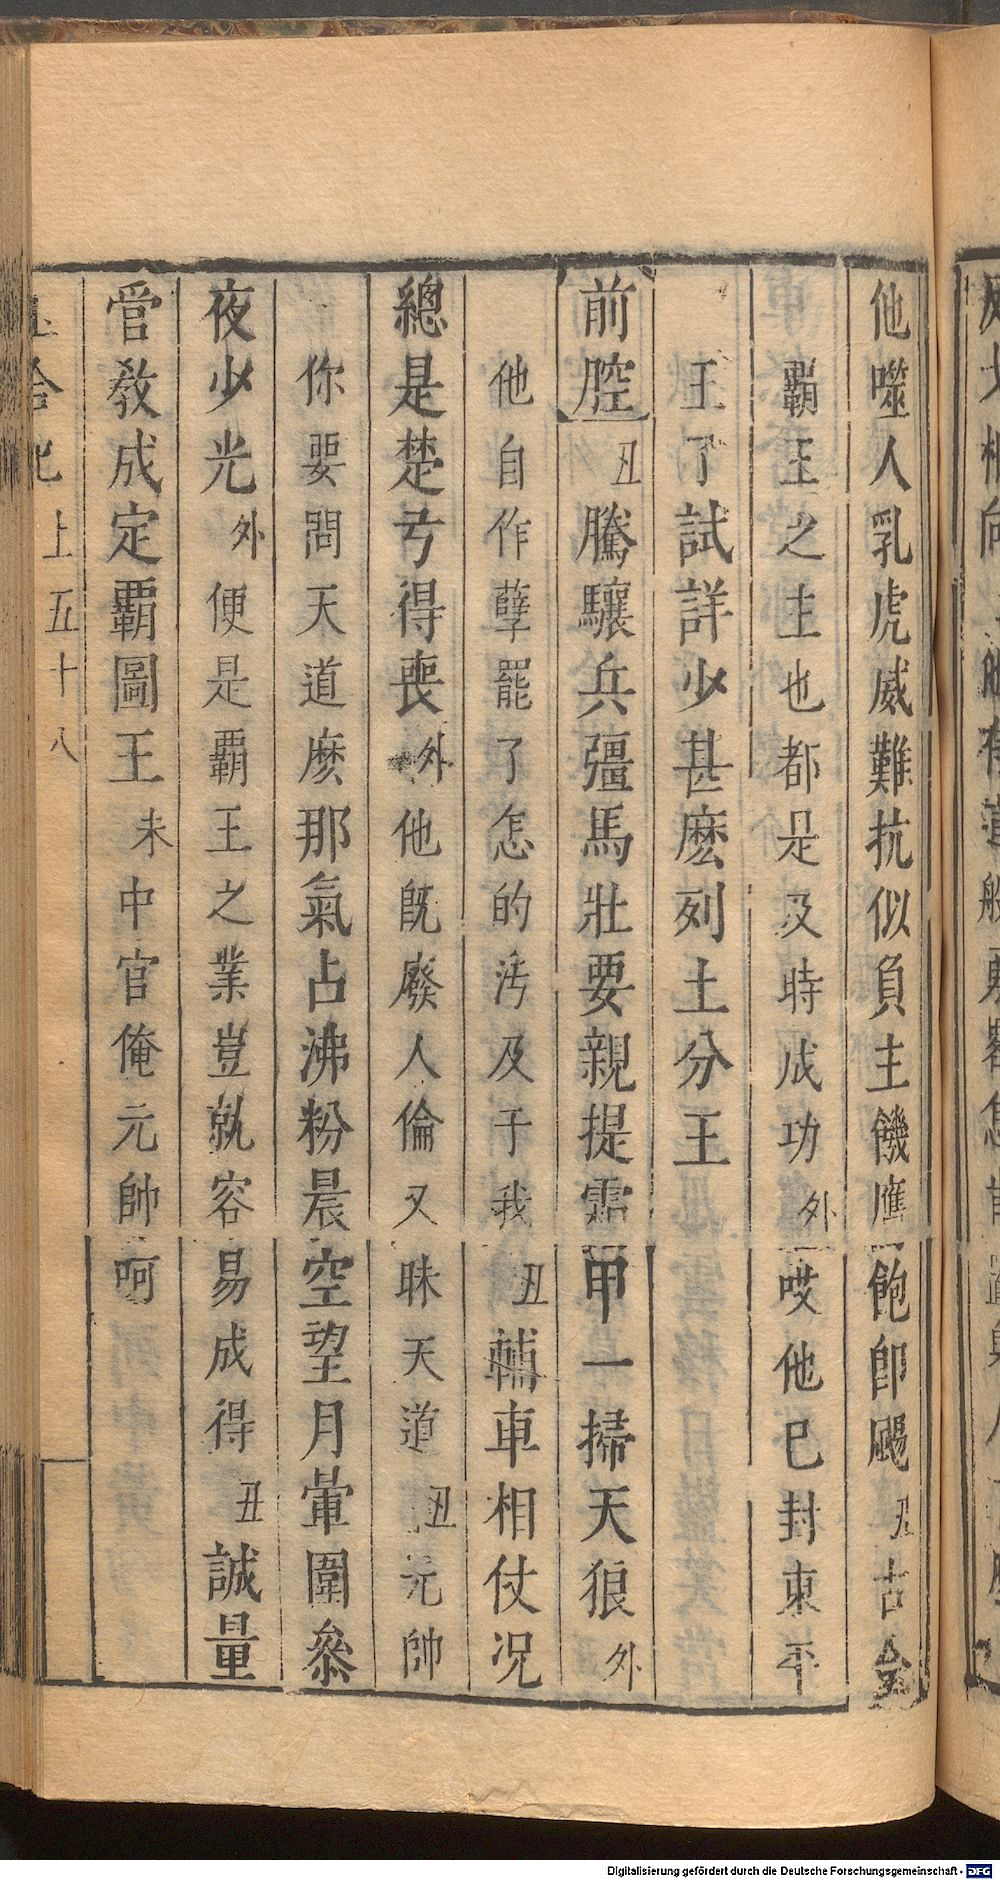 他噬人乳虎威難抗似負主饑鷹飽卽颺丑古今
霸王之主也都是及時成功外哎他已封東平
王了試詳少甚麽列土分王
前腔丑騰驤兵彊馬壯要親提雷甲一掃天狼外
他自作孽罷了怎的汚及于我丑輔車相仗況
總是楚弓得喪外他旣廢人倫又昧天道丑元帥
你要問天道麽那氣占沸粉晨空望月暈圍叅
夜少光外便是霸王之業豈就容易成得丑誠量
管教成定霸圖王末中官俺元帥呵
上五十八
Digitalisierung gefördert durch die Deutsche Forschungsgemeinschaft - DFG